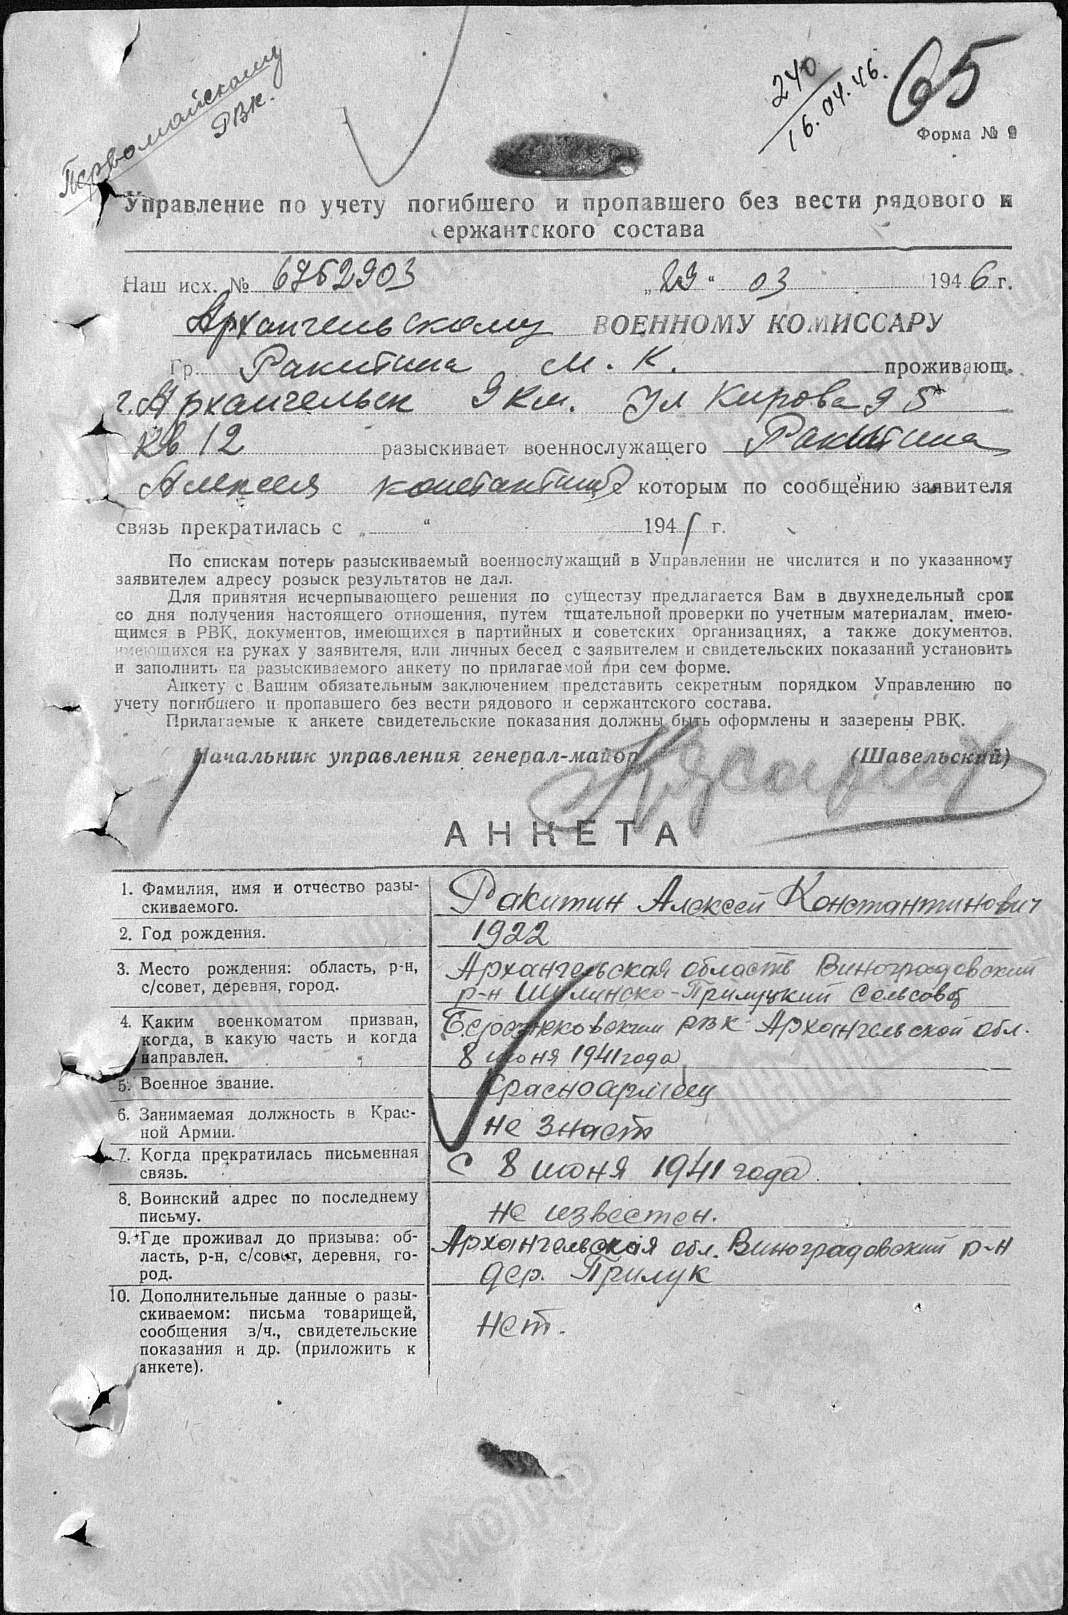 Первомайскому
РВК.
240
16.04.46.
65
Форма № 9
Управление по учету погибшего и пропавшего без вести рядового и
сержантского состава
Наш исх. № 6752903 „29" 03 1946 г.
Архангельскому ВОЕННОМУ КОМИССАРУ
Гр. Ракитина М. К. проживающ.
г. Архангельск 9 км. Ул Кирова 95
кв 12 разыскивает военнослужащего Ракитина
Алексея константин с которым по сообщению заявителя
связь прекратилась с „ " 1941 г.
По спискам потерь разыскиваемый военнослужащий в Управлении не числится и по указанному
заявителем адресу розыск результатов не дал.
Для принятия исчерпывающего решения по существу предлагается Вам в двухнедельный срок
со дня получения настоящего отношения, путем тщательной проверки по учетным материалам, имею-
щимся в РВК, документов, имеющихся в партийных и советских организациях, а также документов,
имеющихся на руках у заявителя, или личных бесед с заявителем и свидетельских показаний установить
и заполнить на разыскиваемого анкету по прилагаемой при сем форме.
Анкету с Вашим обязательным заключением представить секретным порядком Управлению по
учету погибшего и пропавшего без вести рядового и сержантского состава.
Прилагаемые к анкете свидетельские показания должны быть оформлены и заверены РВК.
Начальник управления генерал-майор (Шавельский)
АНКЕТА
1. Фамилия, имя и отчество разы-
скиваемого.
Ракитин Алексей Константинович
2. Год рождения.
1922
3. Место рождения: область, р-н,
с/совет, деревня, город.
Архангельская область Виноградовский
р-н Шилинско-Прилуцкий сельсовет
4. Каким военкоматом призван,
когда, в какую часть и когда
направлен.
Березниковским РВК Архангельской обл.
8 июня 1941 года
5. Военное звание.
Красноармеец
6. Занимаемая должность в Крас-
ной Армии.
не знает
7. Когда прекратилась письменная
связь.
С 8 июня 1941 года.
8. Воинский адрес по последнему
письму.
не известен.
9. Где проживал до призыва: об-
ласть, р-н, с/совет, деревня, го-
род.
Архангельская обл. Виноградовский р-н
дер. Прилук
10. Дополнительные данные о разы-
скиваемом: письма товарищей,
сообщения з/ч., свидетельские
показания и др. (приложить к
анкете).
Нет.